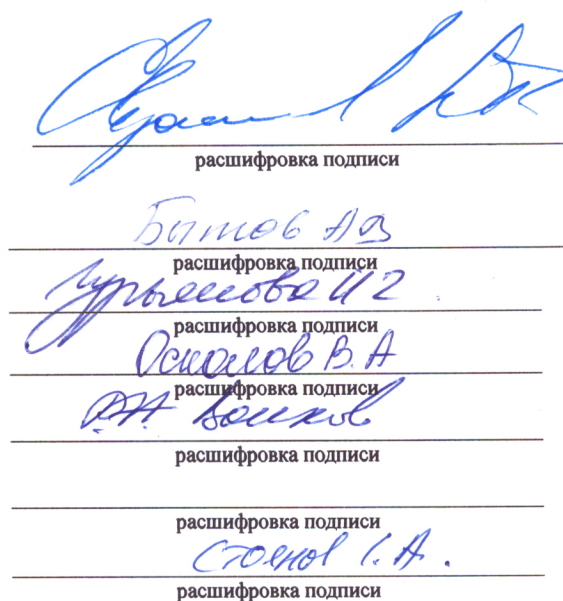 расшифровка подписи
Бытов АВ
расшифровка подписи
Гурьянова И Г
расшифровка подписи
Оскалов В.А
расшифровка подписи
расшифровка подписи
расшифровка подписи
Стоянов С.А.
расшифровка подписи